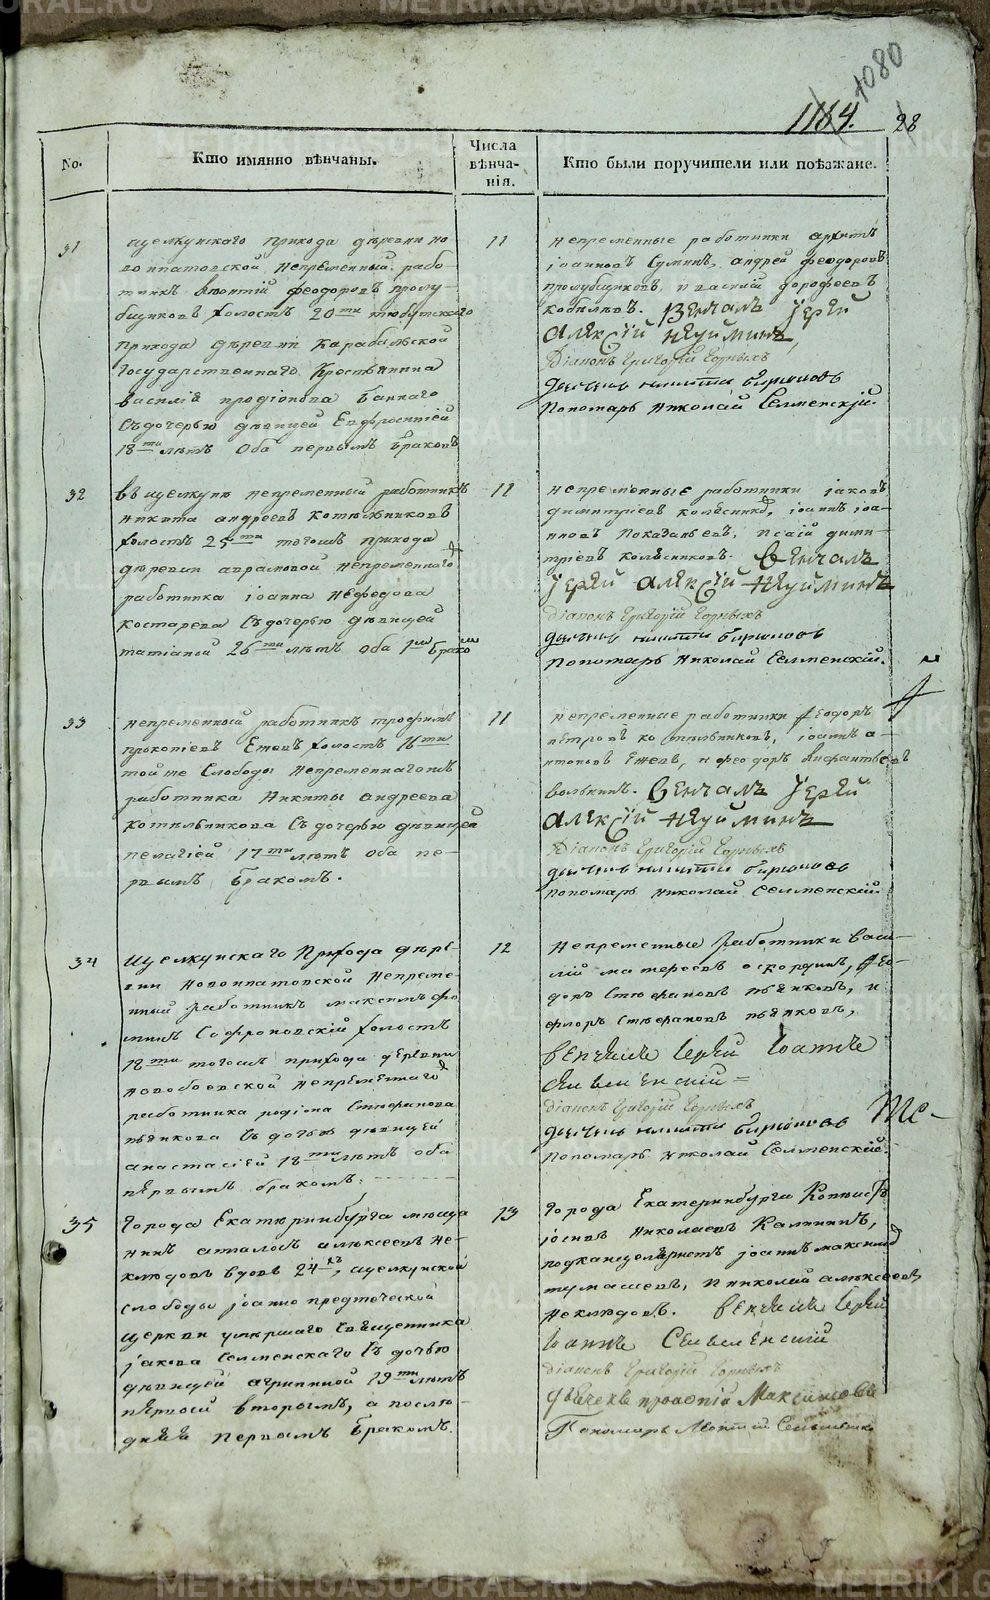 1080
1164. 28
No.
Кто имянно вѣнчаны.
Числа
вѣнча-
нія.
Кто были поручители или поѣзжане.
31
щелкунскаго прихода деревни но
воипатовской непременный рабо-
тникъ феодоровъ голу-
бщиковъ холостъ 20ти
прихода деревни Карабольской
государственнаго Крестьянина
василія бачкаго
съ дочерью девицей Евфросиніей
18ти летъ Оба первымъ бракомъ
11
непременные работники архипъ
іоанновъ Суминъ, андрей феодоровъ
голубщиковъ, и василій дорофеевъ
кобылевъ. Венчалъ Іерей
Алексій Неуйминъ,
Діаконъ Григорій Горныхъ
дьячекъ никита бирюковъ
Пономарь Николай Селменскій.
32
въ щелкунѣ непременный работникъ
никита андреевъ котельниковъ
холостъ 25ти тогожъ прихода
деревни аврамовой непременнаго
работника іоанна нефедова
костарева съ дочерью девицей
татіаной 26ти летъ оба 1мъ брако
11
непременные работники іаковъ
димитріевъ колесниковъ, іоаннъ іоа-
нновъ и исаій дими-
тріевъ колесниковъ. Венчалъ
Іерей Алексій Неуйминъ
Діаконъ Григорій Горныхъ
дьячекъ никита бирюковъ
Пономарь Николай Селменскій.
33
непременный работникъ трофимъ
прокопіевъ Ежевъ холостъ 16ти
той же Слободы непременнагожъ
работника Никиты андреева
котельникова съ дочерью девицей
пелагіей 17ти летъ оба пе-
рвымъ бракомъ.
11
непременные работники феодоръ
петровъ котельниковъ, іоаннъ а-
нтоновъ Ежевъ, и феодоръ
волкинъ. Венчалъ Іерей
Алексій Неуйминъ
Діаконъ Григорій Горныхъ
дьячекъ никита бирюковъ
пономарь Николай Селменскій
34
щелкунскаго прихода дере-
вни Новоипатовской непреме-
нный работникъ максимъ фо
минъ Софроновскій холостъ
18ти тогожъ прихода деревни
новобоевской непременнаго
работника родіона Стефанова
пьянкова съ дочерью девицей
анастасіей 18ти летъ оба
первымъ бракомъ.
12
непременные работники васи-
лій матфеевъ оскоринъ, Фео-
доръ Стефановъ пьянковъ, и
флоръ Стефановъ пьянковъ,
венчалъ Іерей Іоаннъ
Сильменскій
Діаконъ Григорій Горныхъ
дьячекъ никита бирюковъ
Пономарь Николай Селменскій.
35
Города Екатеринбурга меща
нинъ аталонъ алексеевъ не-
клюдовъ вдовъ 24хъ, щелкунской
слободы іоанно предтеческой
церкви умершаго Священника
іакова Селменскаго съ дочерью
девицей агрипиной 19ти летъ
первый вторымъ, а после-
дняя первымъ бракомъ.
13
города Екатеринбурга Копіистъ
Николаевъ Калининъ,
подканцеляристъ іоаннъ
тумашевъ, и николай алексеевъ
неклюдовъ. венчалъ Іерей
Іоаннъ Сильменскій
діаконъ Григорій Горныхъ
Дьячекъ Максимовъ
Пономарь Леонтій
METRIKI.GASU-URAL.RU